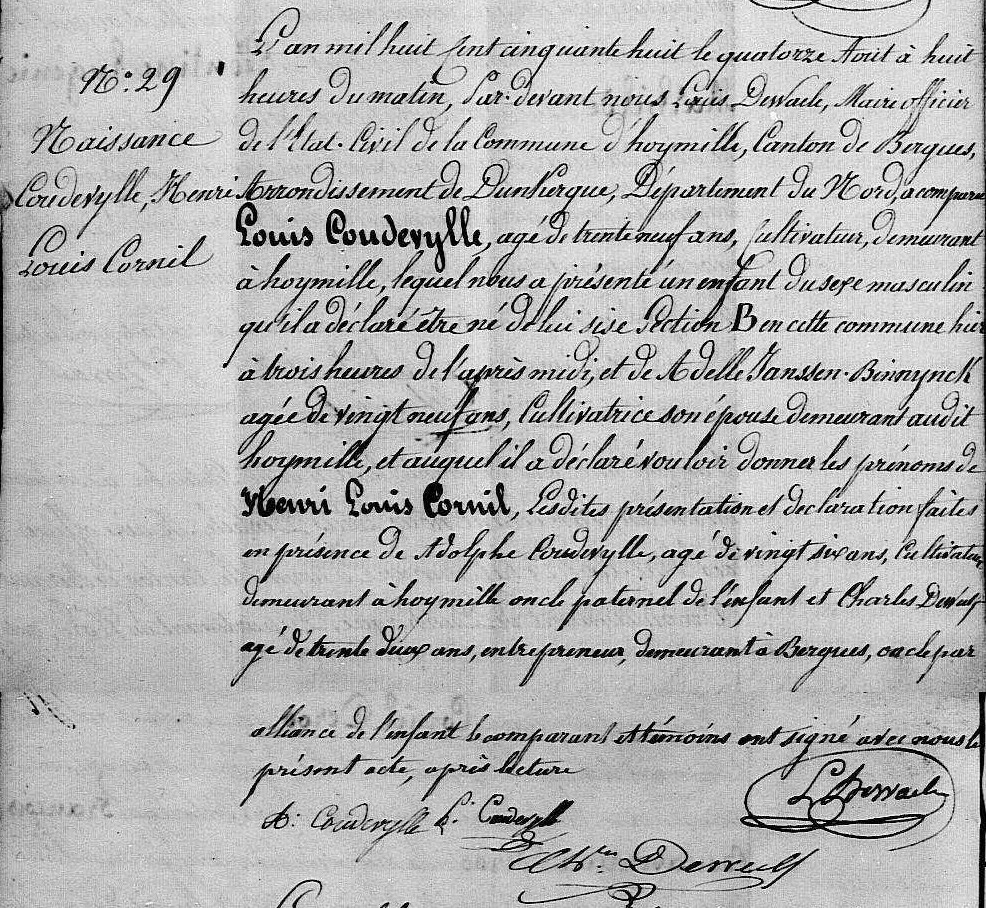 N.° 29
Naissance
Coudevylle, Henri
Louis Cornil
L'an mil huit cent cinquante huit le quatorze Aout à huit
heures du matin, Par-devant nous Louis Dewaele, Maire officier
de l'Etat-Civil de la Commune d'hoymille, Canton de Bergues,
Arrondissement de Dunkerque, Département du Nord, a comparu
Louis Coudevylle, agé de trente neuf ans, Cultivateur, demeurant
à hoymille, lequel nous a présenté un enfant du sexe masculin
qu'il a déclaré être né de lui sise Section B en cette commune hier
à trois heures de l'après midi, et de Adelle Janssen-Binnynck
agée de vingt neuf ans, Cultivatrice son épouse demeurant audit
hoymille, et auquel il a déclaré vouloir donner les prénoms de
Henri Louis Cornil, Lesdites présentation et declaration faites
en présence de Adolphe Coudevylle, agé de vingt six ans, Cultivateur
demeurant à hoymille oncle paternel de l'enfant et Charles Dewulf,
agé de trente deux ans, entrepreneur, demeurant à Bergues, oncle par
alliance de l'enfant le comparant et témoins ont signé avec nous le
présent acte, après lecture
L Dewaele
A: Coudevylle L: Coudevylle
Ch.les Dewulf